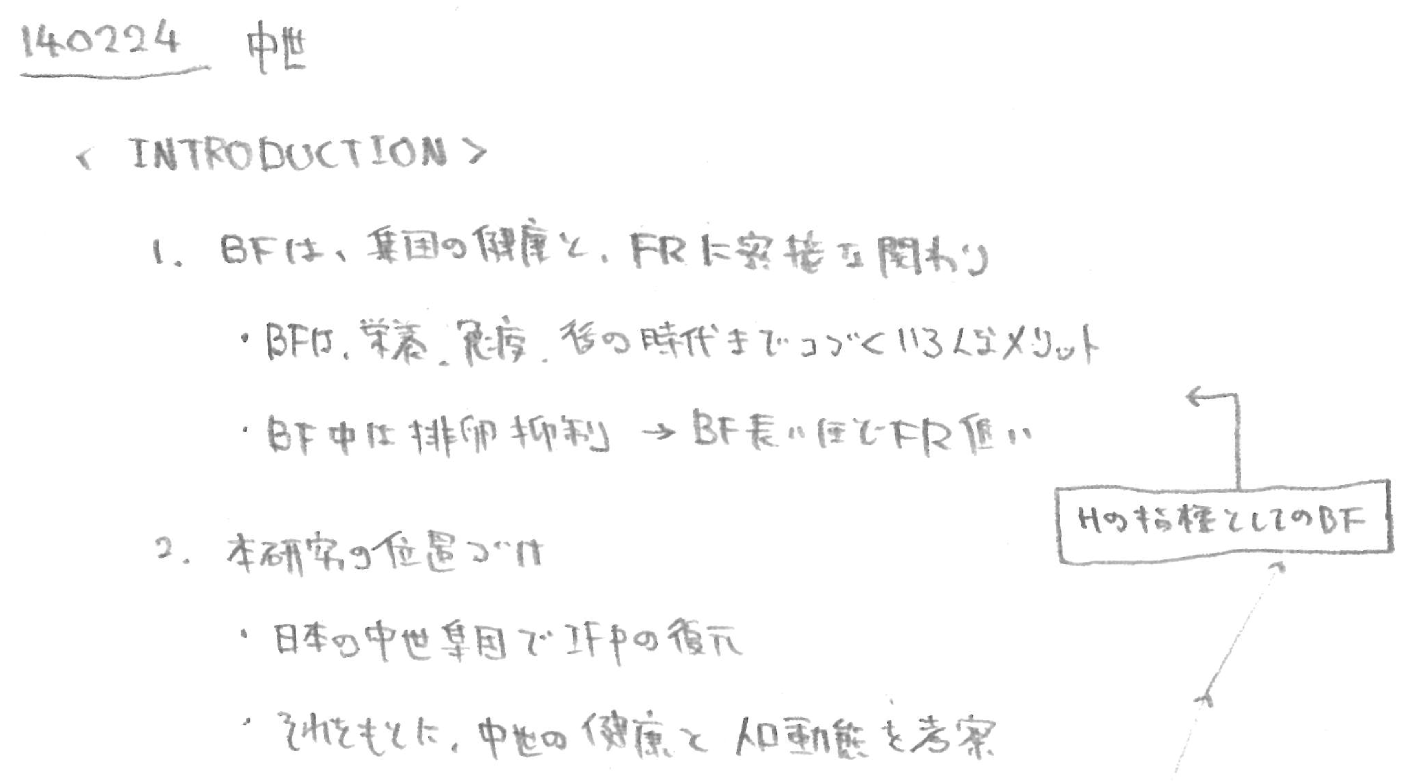 140224 中世
< INTRODUCTION >
1. BFは、集団の健康と、FRに密接な関わり
・BFは、栄養、免疫、後の時代までつづくいろんなメリット
・BF中は排卵抑制 → BF長いほどFR低い
Hの指標としてのBF
2. 本研究の位置づけ
・日本の中世集団でIFPの復元
・それをもとに、中世の健康と人口動態を考察